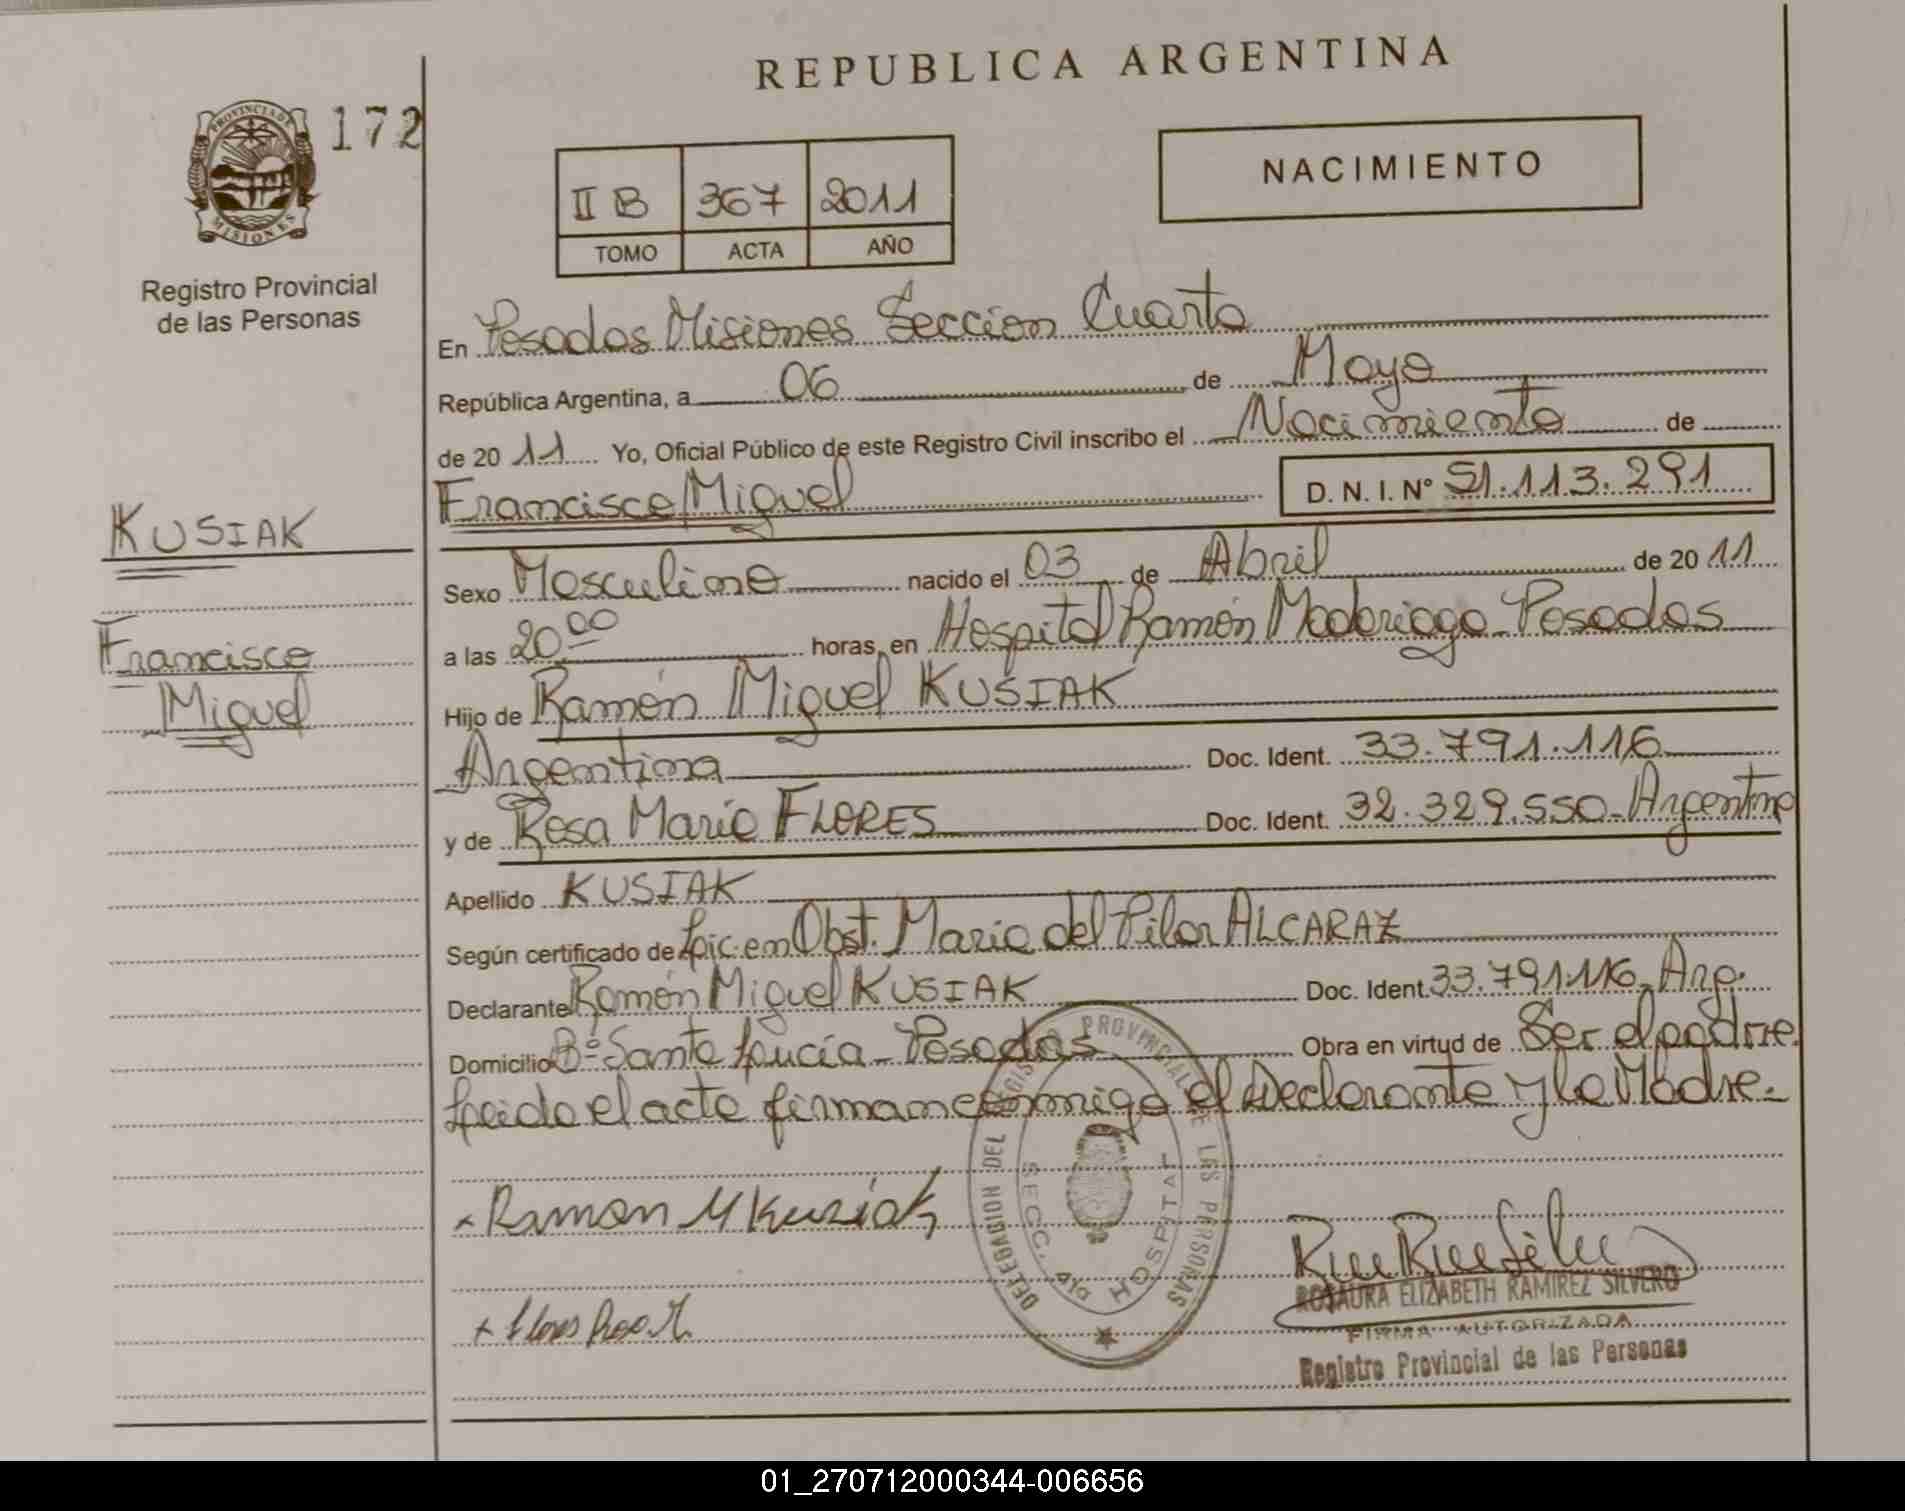 REPUBLICA ARGENTINA
PROVINCIA DE MISIONES
172
Registro Provincial
de las Personas
II B 367 2011
TOMO ACTA AÑO
NACIMIENTO
En Posadas Misiones Seccion Cuarta
República Argentina, a 06 de Mayo
de 2011 Yo, Oficial Público de este Registro Civil inscribo el Nacimiento de
Francisco Miguel D. N. I. Nº 51.113.291
KUSIAK
Francisco
Miguel
Sexo Masculino nacido el 03 de Abril de 2011
a las 20:00 horas, en Hospital Ramón Madariaga - Posadas
Hijo de Ramón Miguel KUSIAK
Argentina Doc. Ident. 33.791.116
y de Rosa Maria FLORES Doc. Ident. 32.329.550 - Argentina
Apellido KUSIAK
Según certificado de Lic. en Obst. Maria del Pilar ALCARAZ
Declarante Ramón Miguel KUSIAK Doc. Ident. 33.791.116 - Arg.
Domicilio Bº Santa Lucía - Posadas Obra en virtud de Ser el padre.
Leida el acta firman conmigo el Declarante y la Madre.-
x Ramon M Kusiak
x Flores Rosa M.
DELEGACION DEL REGISTRO PROVINCIAL DE LAS PERSONAS
SECC. 4ta HOSPITAL
ROSAURA ELIZABETH RAMIREZ SILVERO
FIRMA AUTORIZADA
Registro Provincial de las Personas
01_270712000344-006656